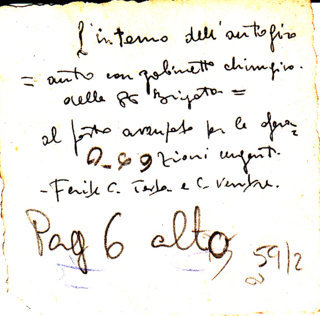 L'interno dell'autogiro
= auto con gabinetto chirurgico.
della 86 Brigata =
al posto avanzato per le opera=
zioni urgenti.
- Ferite C. Testa e C. ventre.
Pag 6 alto
59/2